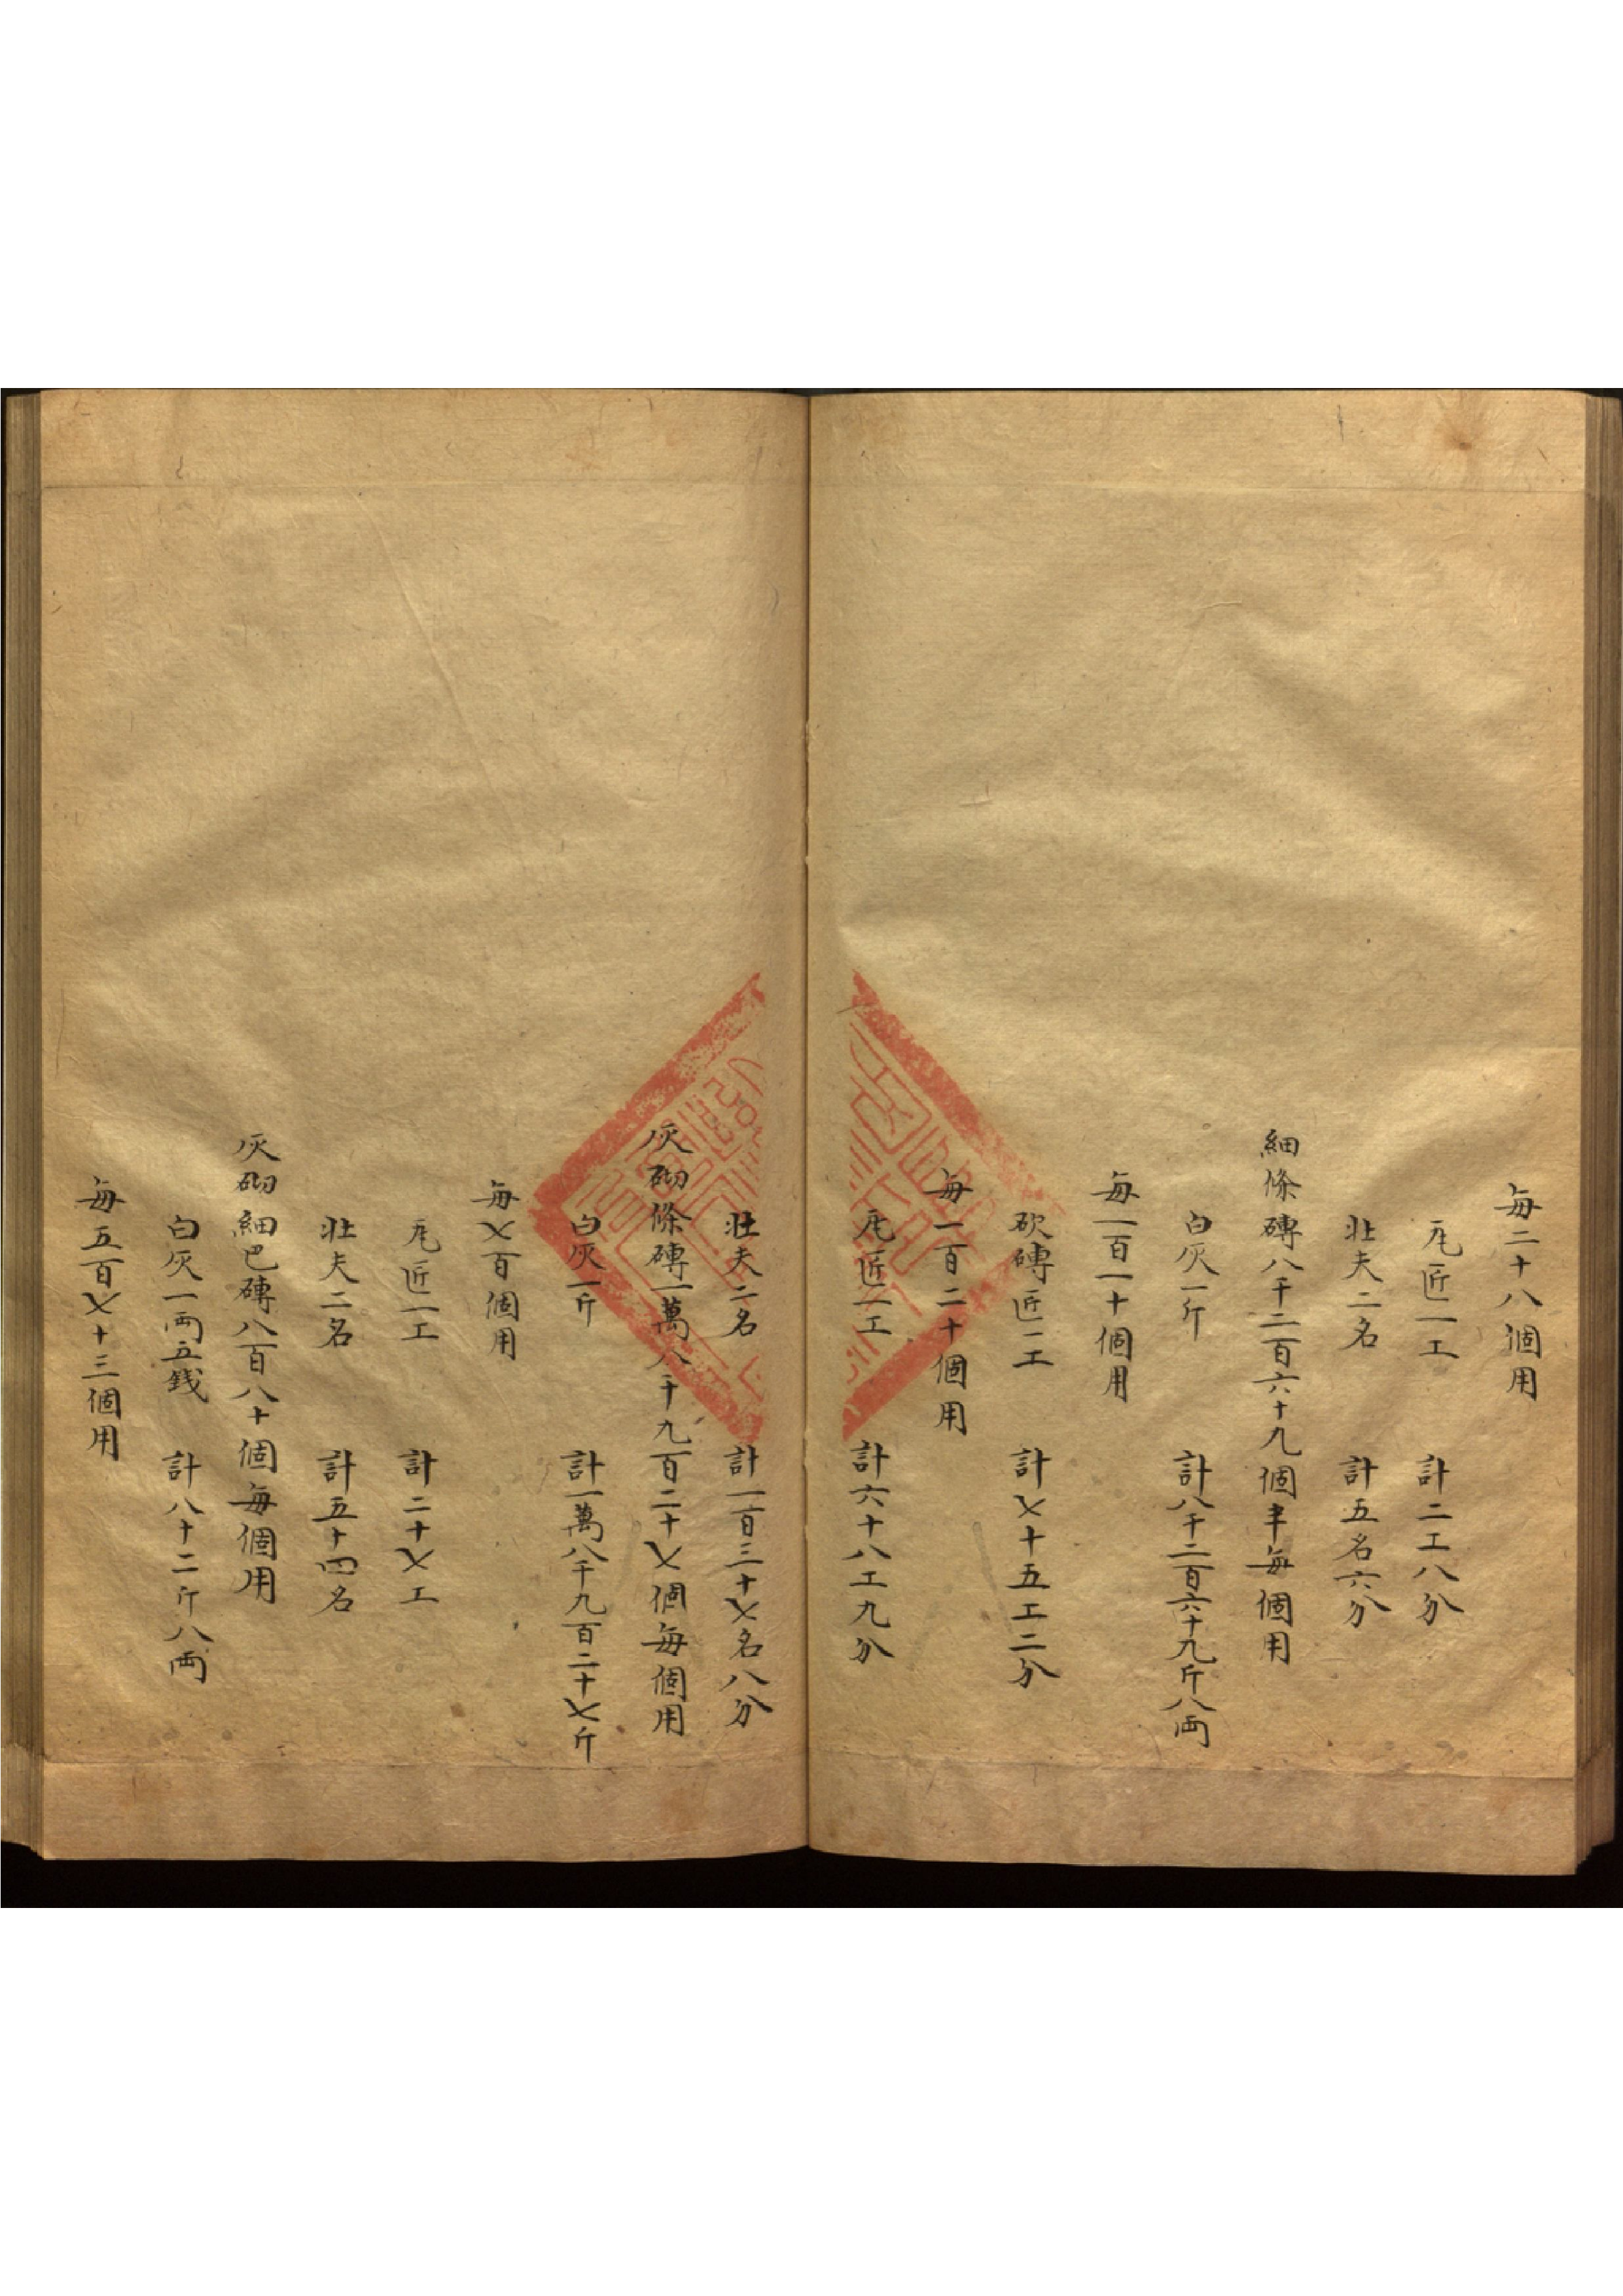 每二十八個用
瓦匠一工 計二工八分
壯夫二名 計五名六分
細條磚八千二百六十九個半每個用
白灰一斤 計八千二百六十九斤八兩
每一百一十個用
砍磚匠一工 計七十五工二分
每一百二十個用
瓦匠一工 計六十八工九分
壯夫二名 計一百三十七名八分
灰砌條磚一萬八千九百二十七個每個用
白灰一斤 計一萬八千九百二十七斤
每七百個用
瓦匠一工 計二十七工
壯夫二名 計五十四名
灰砌細巴磚八百八十個每個用
白灰一兩五錢 計八十二斤八兩
每五百七十三個用